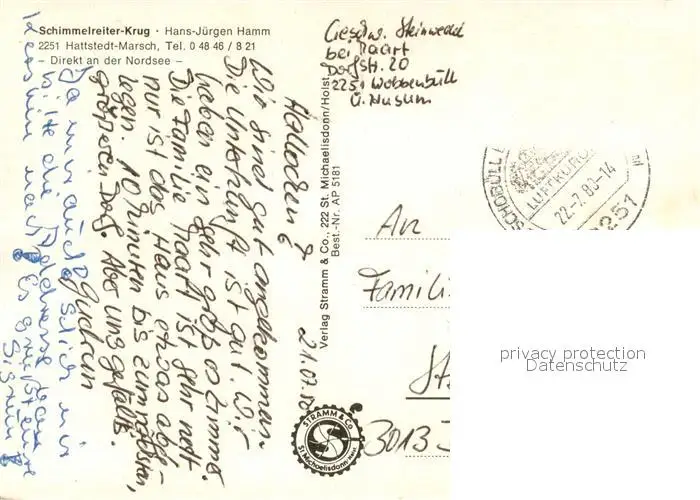 Schimmelreiter-Krug · Hans-Jürgen Hamm
2251 Hattstedt-Marsch, Tel. 0 48 46 / 8 21
– Direkt an der Nordsee –
Geschw. Steinwedel
bei Maart
Dorfstr. 20
2251 Wobbenbüll
ü. Husum
21.07.
Hallöchen!
Wir sind gut angekommen.
Die Unterkunft ist gut. Wir
haben ein sehr großes Zimmer.
Die Familie Maart ist sehr nett
nur ist das Haus etwas abge-
legen. 10 Minuten bis zum nächsten,
größeren Dorf. Aber uns gefällts.
Gudrun
Verlag Stramm & Co., 222 St. Michaelisdonn/Holst.
Best.-Nr. AP 5181
STRAMM & Co
St Michaelisdonn
SCHOBÜLL
LUFTKURORT
22.-7.80-14
2251
An
Famili
St
3013
privacy protection
Datenschutz